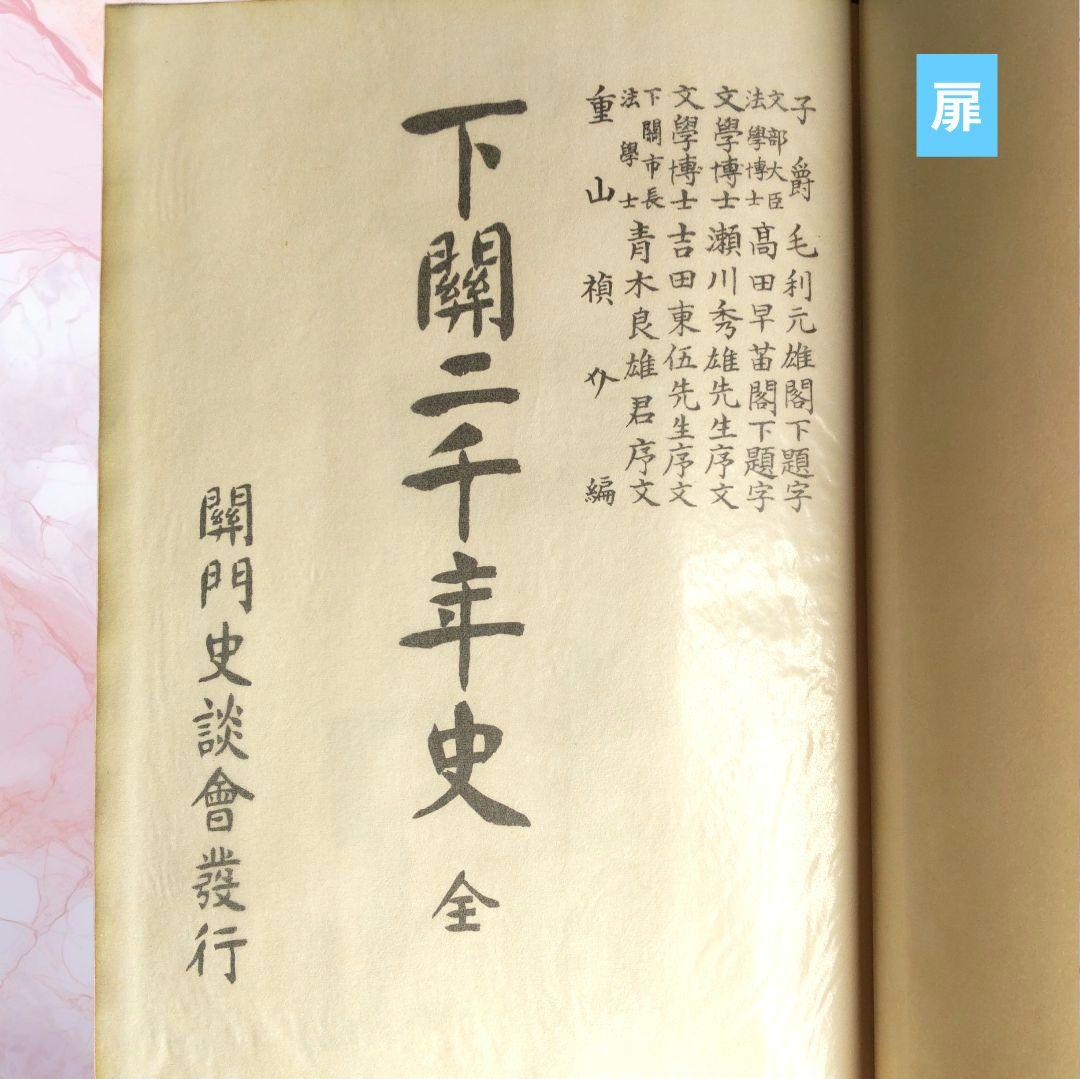 扉
子爵 毛利元雄閣下題字
文部大臣 法學博士 高田早苗閣下題字
文學博士 瀬川秀雄先生序文
文學博士 吉田東伍先生序文
下關市長 法學士 青木良雄君序文
重山禎介編
下關二千年史 全
關門史談會發行